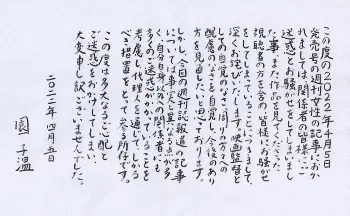 この度の2022年4月5日
発売号の週刊女性の記事におか
れましては、関係者の皆様にご
迷惑とお騒がせをしてしまいまし
た事、また作品を見てくださった
視聴者の方を含め皆様にお騒が
せをしてしまっていることにつきまして、
深くお詫びいたします。映画監督と
しての自覚のなさ、周りの方への
配慮のなさを自覚し、今後のあり
方を見直したいと思っております。
しかし、今回の週刊誌報道の記事
については事実と異なる点が多
く、自分自身以外への関係者にも
多くのご迷惑がかかっていることを
考慮し、代理人を通じて、しかる
べき措置をとって参る所存です。
この度は多大なるご心配と
ご迷惑をおかけしてしまい、
大変申し訳ございませんでした。
二〇二二年 四月五日
園 子温